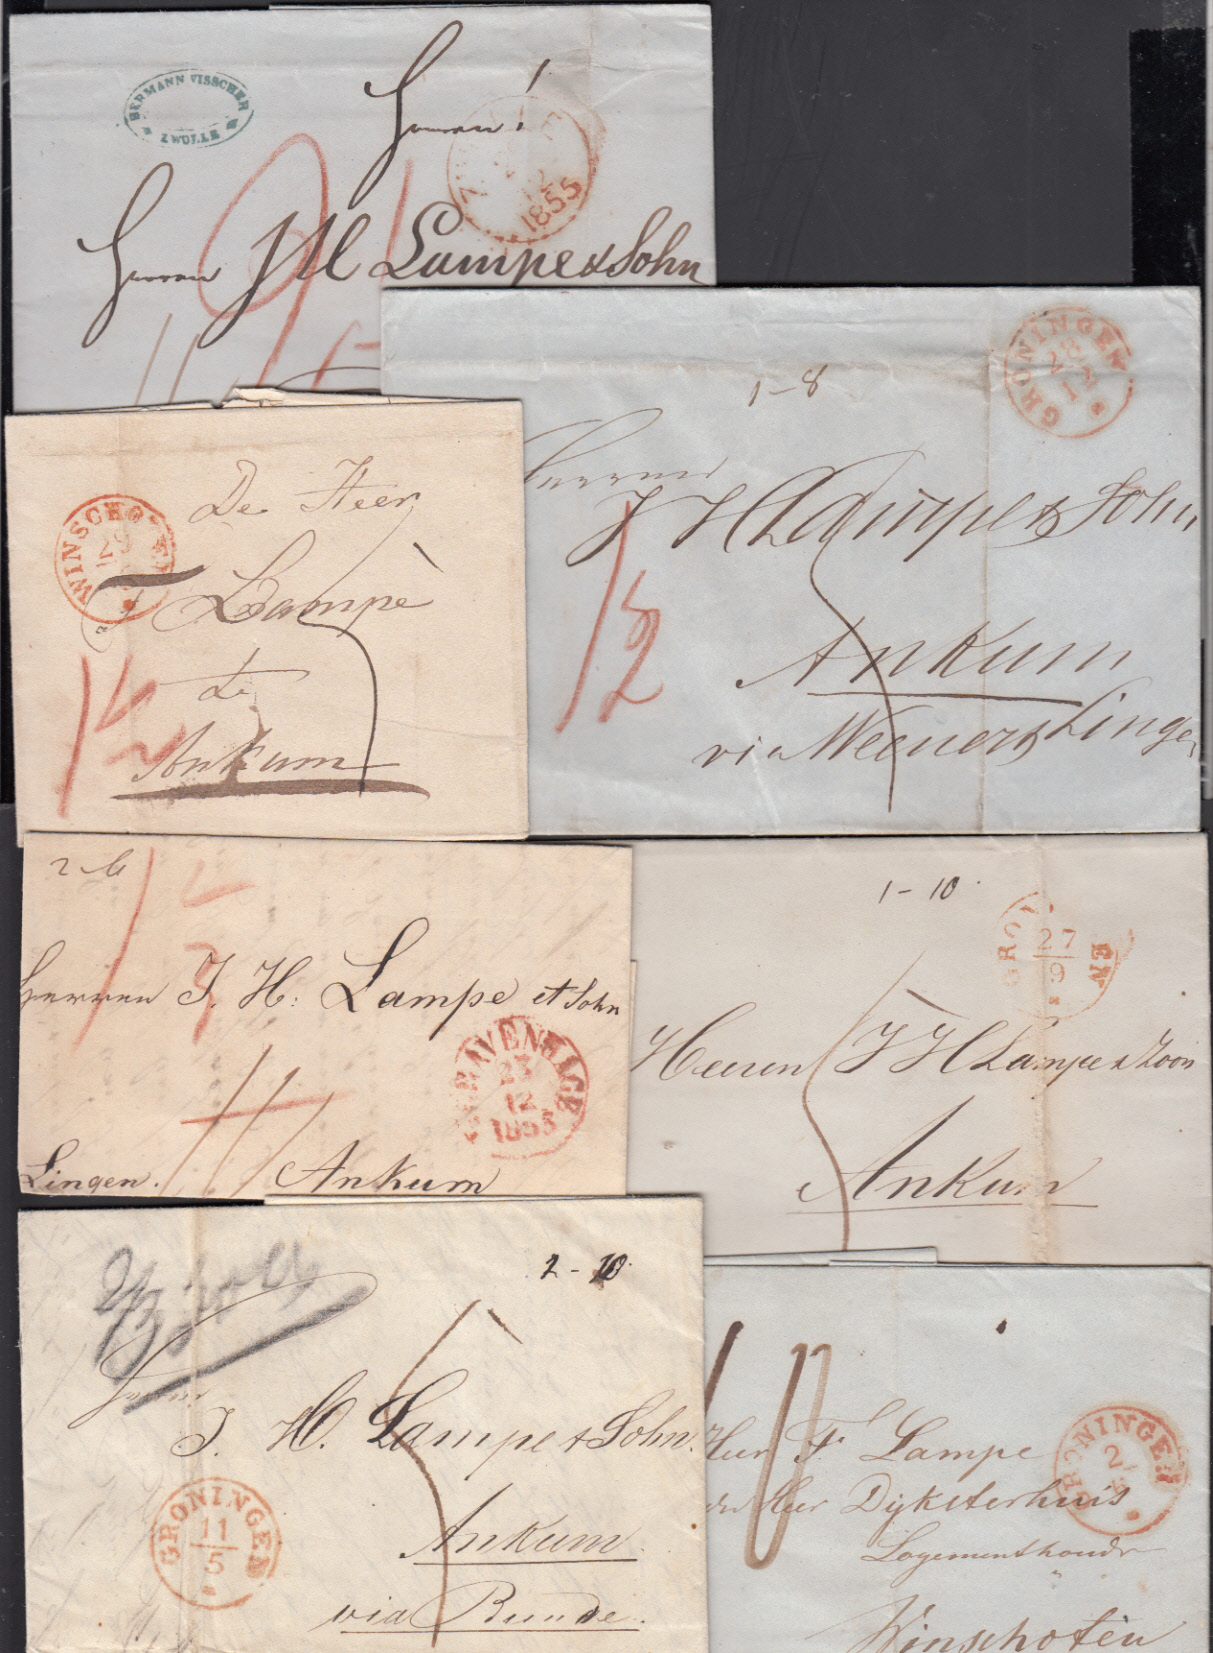 HERMANN VISSCHER
ZWOLLE
Herrn!
1855
Herrn JH Lampe & Sohn
GRONINGEN
28
12
1-8
Herren
J H Lampe & Sohn
1/2
Ankum
via Weener & Lingen
De Heer
WINSCHO
29
Lampe
te
Ankum
Herren J. H. Lampe et Sohn
GRAVENHAGE
23
12
1853
Lingen. Ankum
1-10
GRON EN
27
9
Heeren J H Lampe & Zoon
Ankum
2-10
J. H. Lampe & Sohn.
GRONINGEN
11
5
Ankum
via Bunde.
10
Heer F. Lampe
GRONINGEN
2
Heer Dijksterhuis
Logementhoudr
Winschoten